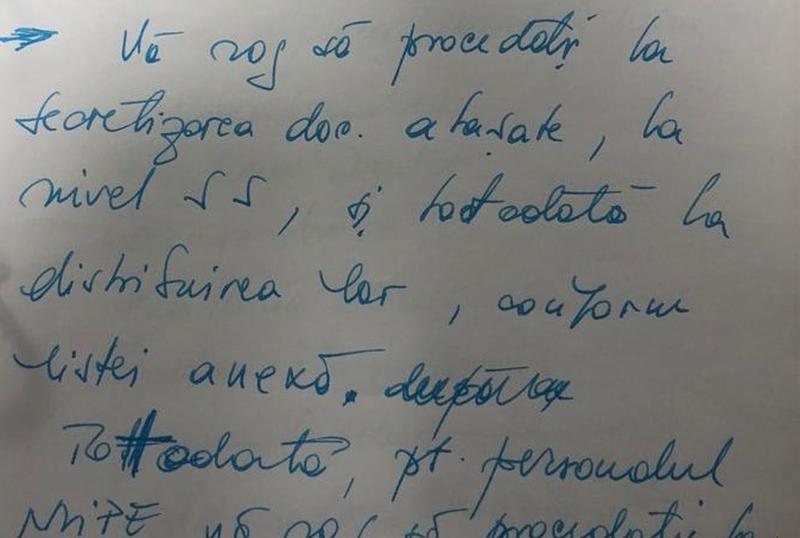 Vă rog să procedați la
secretizarea doc. atașate, la
nivel SS, și totodată la
distribuirea lor, conform
listei anexă.
Totodată, pt. personalul
vă rog să procedați la